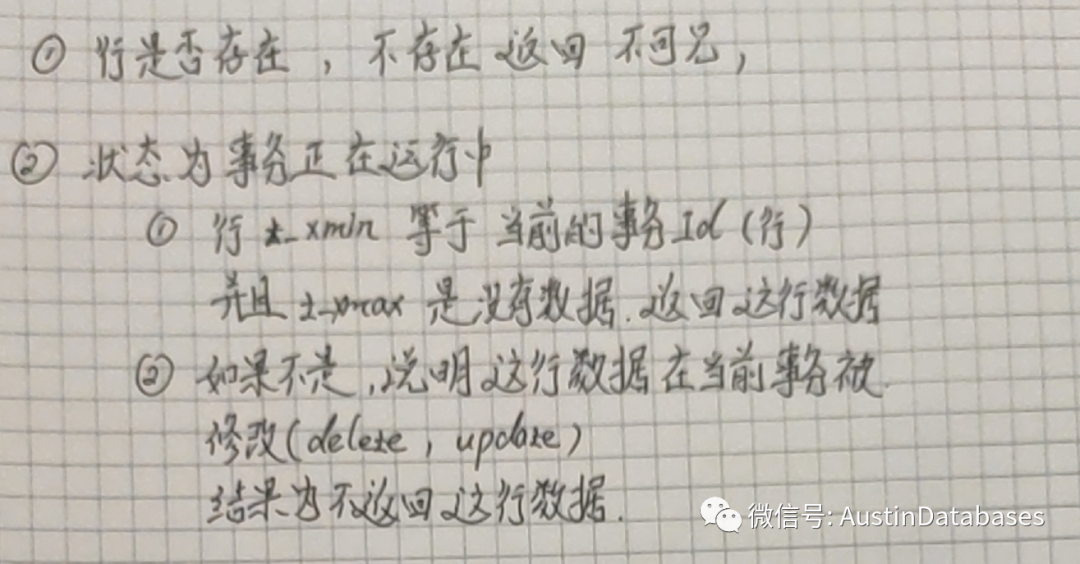 ① 行是否存在，不存在返回 不可见，
② 状态为事务正在运行中
① 行 t_xmin 等于 当前的事务Id（行）
并且 t_xmax 是没有数据.返回这行数据
② 如果不是,说明这行数据在当前事务被
修改(delete, update)
结果为不返回这行数据.
微信号: AustinDatabases